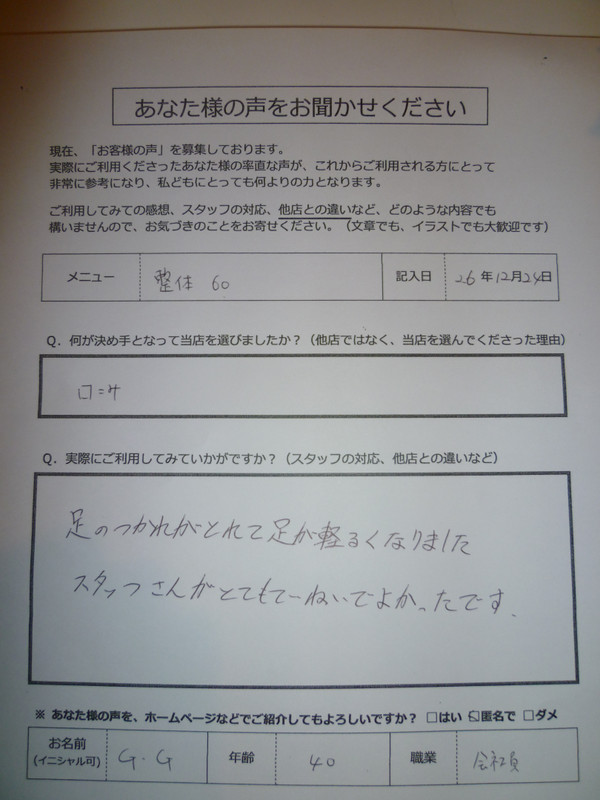 あなた様の声をお聞かせください
現在、「お客様の声」を募集しております。
実際にご利用くださったあなた様の率直な声が、これからご利用される方にとって
非常に参考になり、私どもにとっても何よりの力となります。
ご利用してみての感想、スタッフの対応、他店との違いなど、どのような内容でも
構いませんので、お気づきのことをお寄せください。（文章でも、イラストでも大歓迎です）
メニュー 整体 60 記入日 26年12月24日
Q. 何が決め手となって当店を選びましたか？（他店ではなく、当店を選んでくださった理由）
口コサ
Q. 実際にご利用してみていかがですか？（スタッフの対応、他店との違いなど）
足のつかれがとれて足が軽るくなりました
スタッフさんがとてもてーねいでよかったです.
※ あなた様の声を、ホームページなどでご紹介してもよろしいですか？ □はい ☑匿名で □ダメ
お名前 G.G 年齢 40 職業 会社員
(イニシャル可)